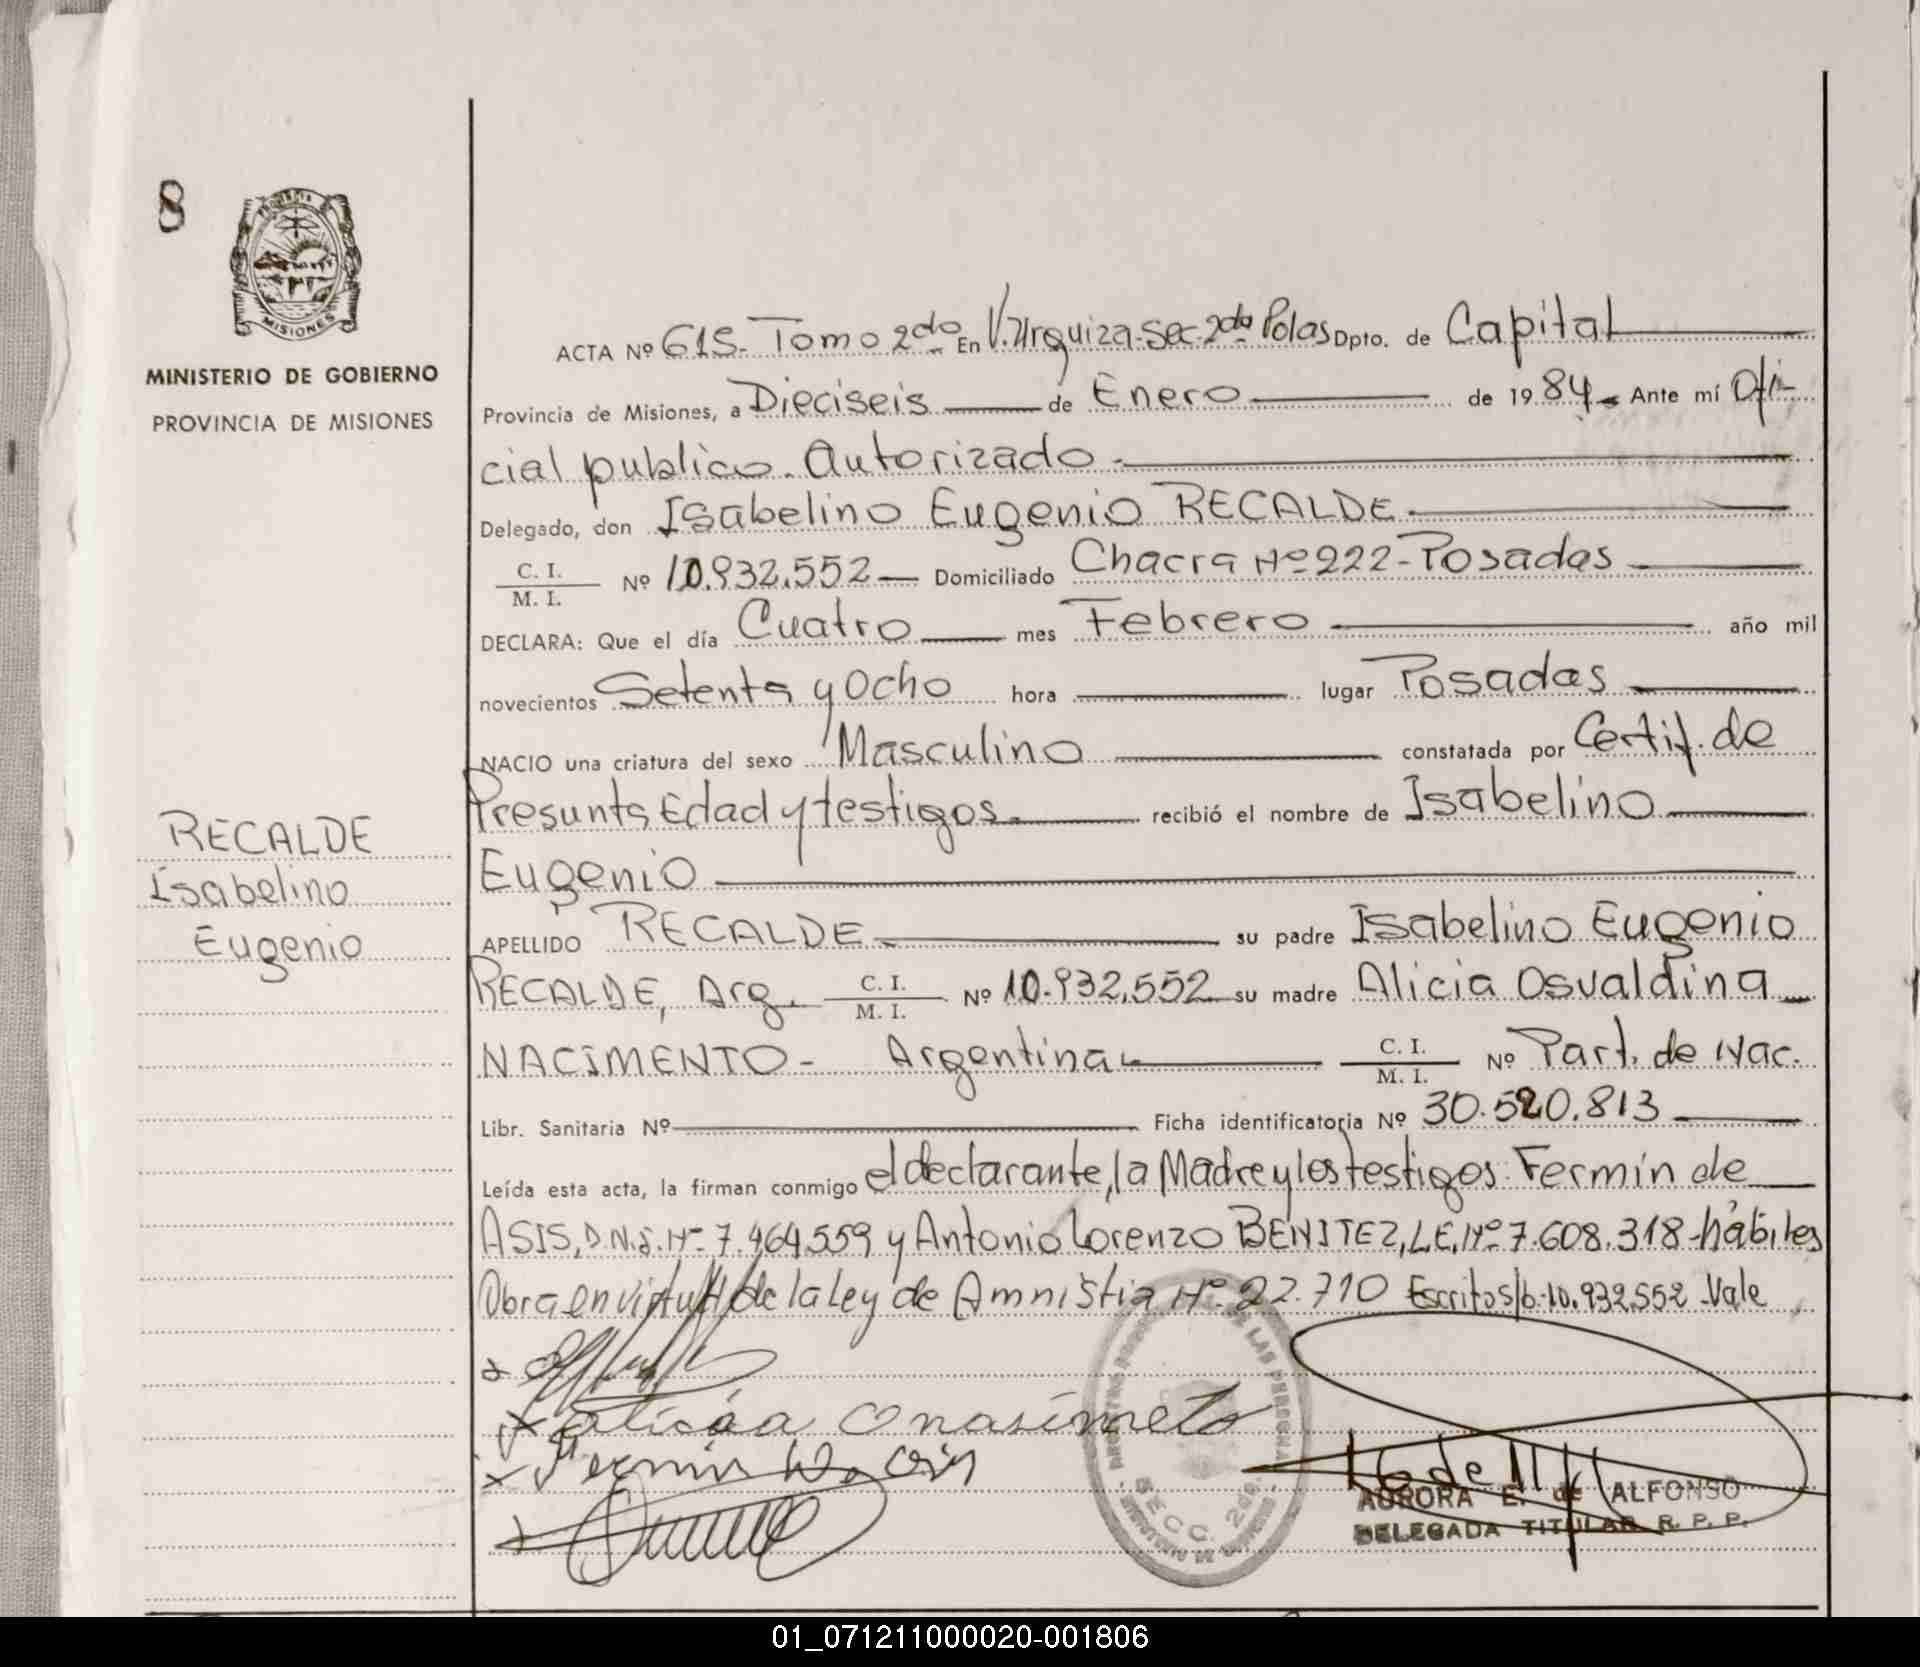 8
PROVINCIA
MISIONES
MINISTERIO DE GOBIERNO
PROVINCIA DE MISIONES
ACTA Nº 615. Tomo 2do. En V. Urquiza-Sec-2da Posas Dpto. de Capital
Provincia de Misiones, a Dieciseis de Enero de 1984 Ante mí Ofi-
cial publico. Autorizado.
Delegado, don Isabelino Eugenio RECALDE.
C. I.
M. I. Nº 10.932.552 Domiciliado Chacra Nº 222-Posadas
DECLARA: Que el día Cuatro mes Febrero año mil
novecientos Setenta y Ocho hora lugar Posadas
NACIO una criatura del sexo Masculino constatada por Certif. de
Presunta Edad y testigos. recibió el nombre de Isabelino
Eugenio
APELLIDO RECALDE su padre Isabelino Eugenio
RECALDE, Arg. C. I. M. I. Nº 10.932.552 su madre Alicia Osvaldina
NACIMENTO- Argentina C. I. M. I. Nº Part. de Nac.
Libr. Sanitaria Nº Ficha identificatoria Nº 30.520.813
Leída esta acta, la firman conmigo el declarante, la Madre y los testigos: Fermín de
ASIS, D.N.I. Nº 7.464.559 y Antonio Lorenzo BENITEZ, L.E. Nº 7.608.318-hábiles
Obra en virtud de la ley de Amnistia Nº 22.710 Escritos/b-10.932.552-Vale
RECALDE
Isabelino
Eugenio
SECC. 2da.
AURORA E. de ALFONSO
DELEGADA TITULAR R. P. P.
01_071211000020-001806